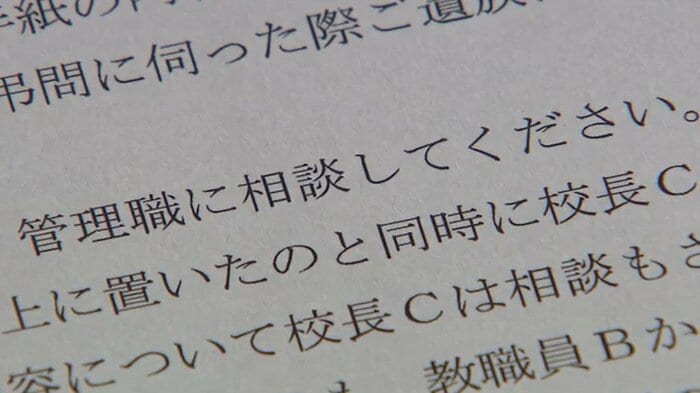 手紙の内
弔問に伺った際ご遺族
管理職に相談してください。
上に置いたのと同時に校長C
容について校長Cは相談もさ
教職員Bか